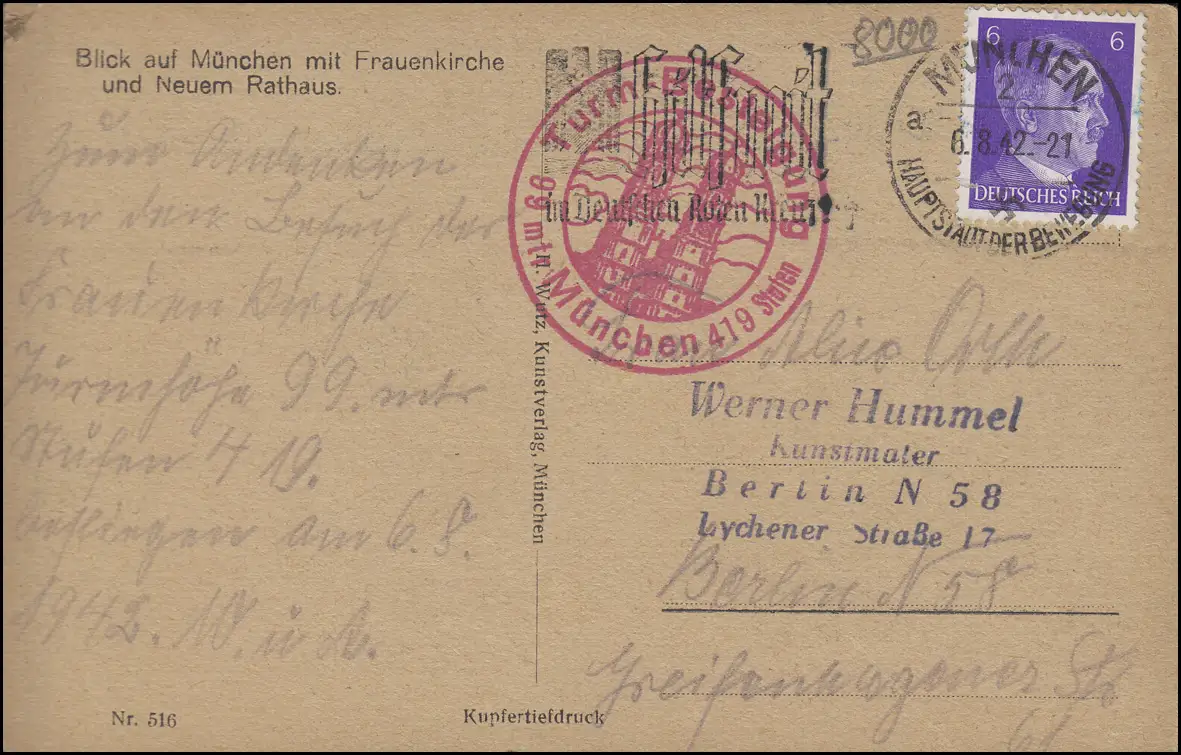 Blick auf München mit Frauenkirche
und Neuem Rathaus.
8000
6 6
DEUTSCHES REICH
MÜNCHEN
2
a
6.8.42.-21
HAUPTSTADT DER BEWEGUNG
Helft mit
im Deutschen Roten Kreuz!
Turm-Besteigung
99 mtr. München 419 Stufen
Zum Andenken
an den Besuch der
Frauen Kirche
Turmhöhe 99. mtr
Stufen 419.
am 6. 8.
1942. W. u
H. Wutz, Kunstverlag, München
Alice
Werner Hummel
Kunstmaler
Berlin N 58
Lychener Straße 17
Berlin N 58
Greifenhagener Str
Nr. 516
Kupfertiefdruck